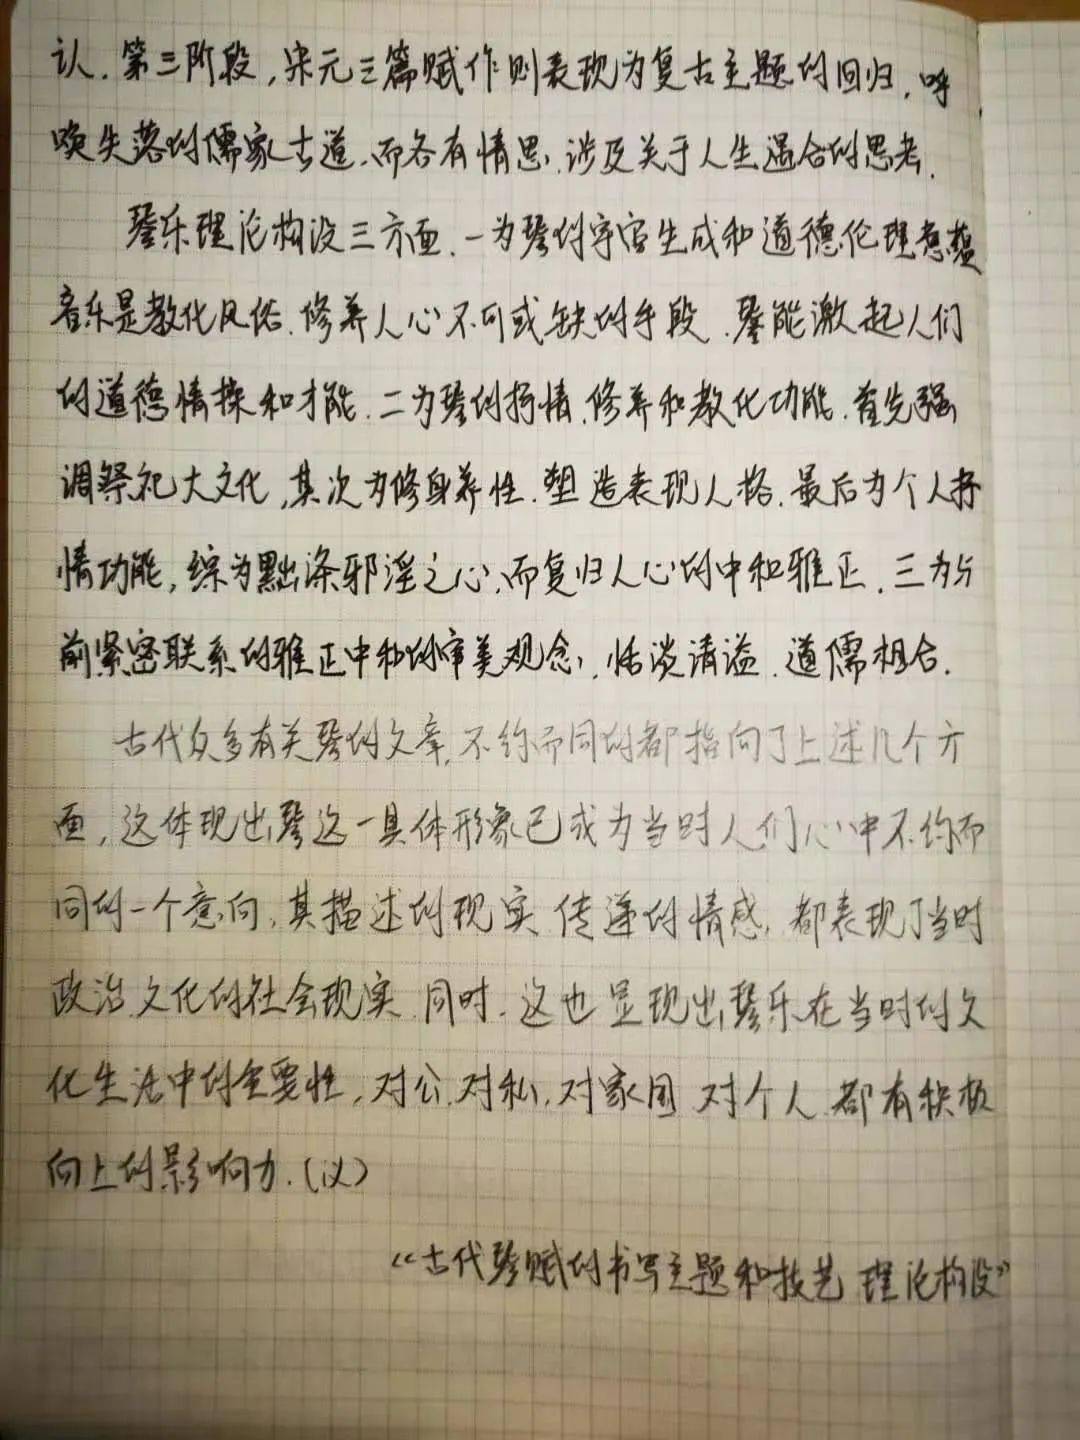 认.第三阶段,宋元三篇赋作则表现为复古主题的回归,呼
唤失落的儒家古道.而各有情思,涉及关于人生遇合的思考.
琴乐理论构设三方面.一为琴的宇宙生成和道德伦理意蕴
音乐是教化风俗.修养人心不可或缺的手段.琴能激起人们
的道德情操和才能.二为琴的抒情.修养和教化功能.首先强
调祭祀大文化,其次为修身养性.塑造表现人格.最后为个人抒
情功能,综为黜涤邪淫之心,而复归人心的中和雅正.三为与
前紧密联系的雅正中和的审美观念,恬淡清溢.道儒相合.
古代众多有关琴的文章,不约而同的都指向了上述几个方
面,这体现出琴这一具体形象已成为当时人们心中不约而
同的一个意向,其描述的现实 传递的情感,都表现了当时
政治.文化的社会现实.同时.这也显现出琴乐在当时的文
化生活中的重要性,对公.对私,对家国 对个人.都有积极
向上的影响力.(议)
“古代琴赋的书写主题和技艺 理论构设”